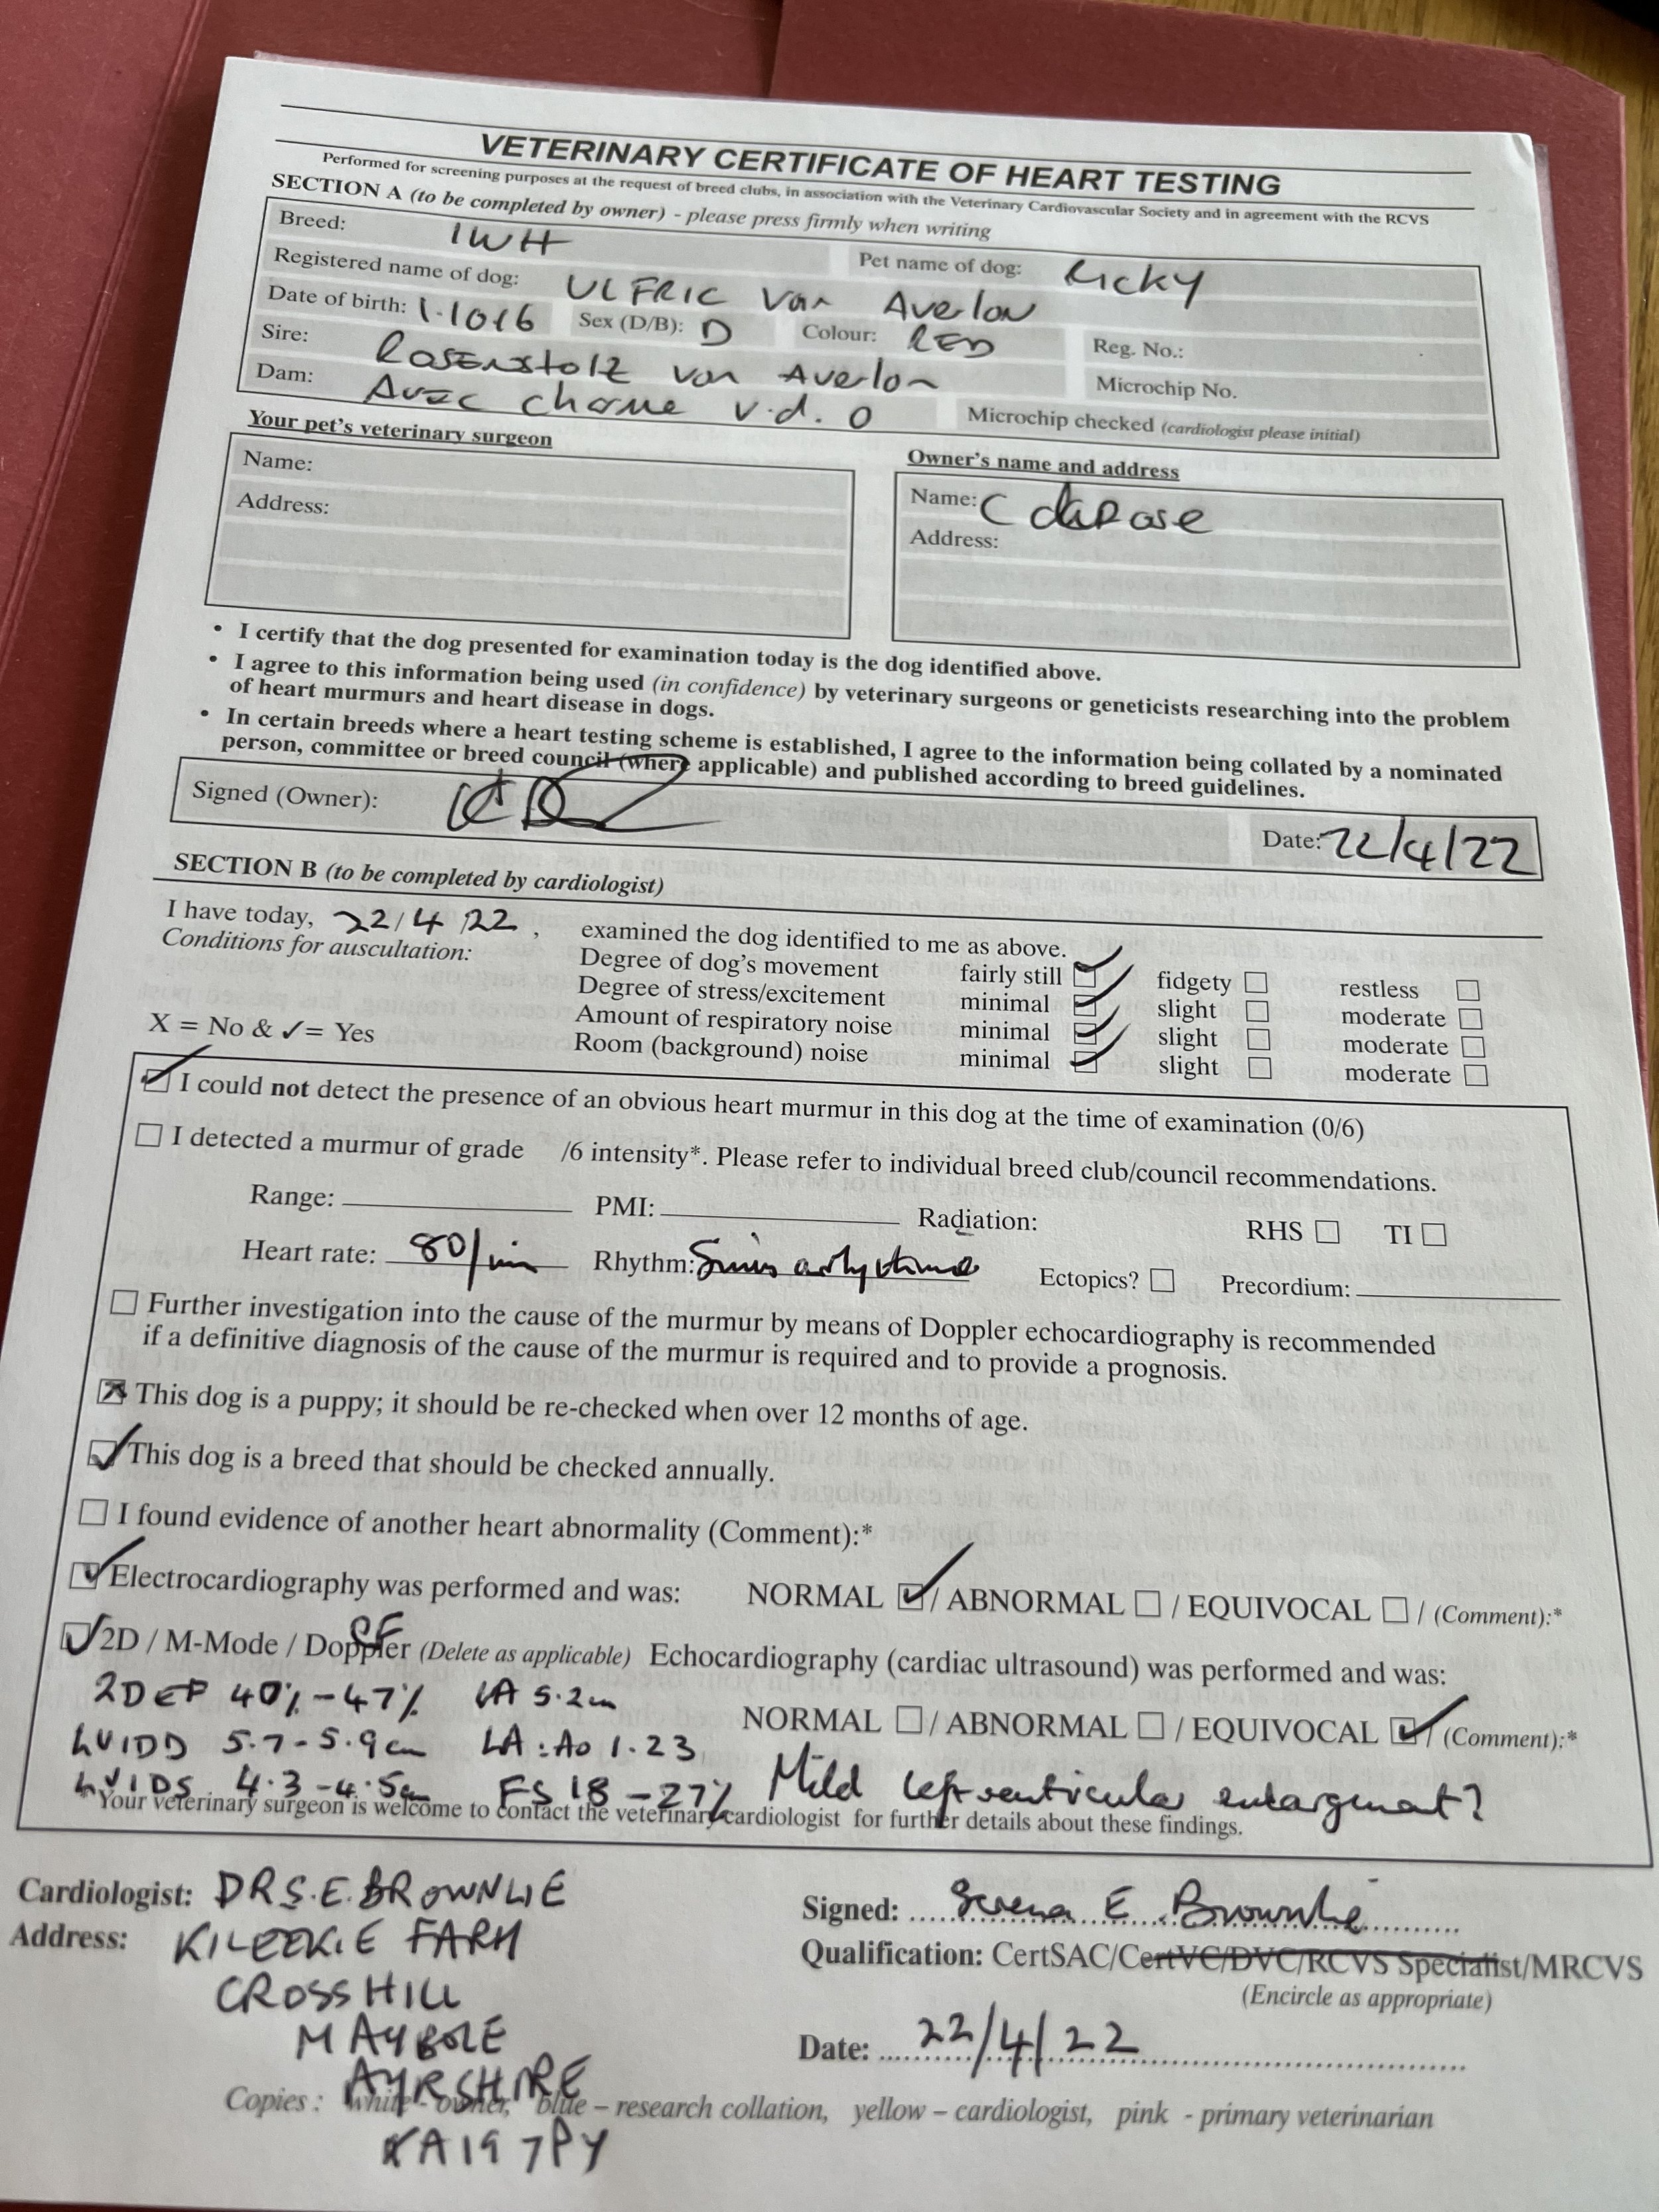 VETERINARY CERTIFICATE OF HEART TESTING
Performed for screening purposes at the request of breed clubs, in association with the Veterinary Cardiovascular Society and in agreement with the RCVS
SECTION A (to be completed by owner) - please press firmly when writing
Breed: IWH Pet name of dog: Ricky
Registered name of dog: ULFRIC Van Averlon
Date of birth: 1-1016 Sex (D/B): D Colour: RED Reg. No.:
Sire: Rosenstolz van Averlon Microchip No.
Dam: Avec charme v.d. O Microchip checked (cardiologist please initial)
Your pet's veterinary surgeon Owner's name and address
Name: Name: C
Address: Address:
• I certify that the dog presented for examination today is the dog identified above.
• I agree to this information being used (in confidence) by veterinary surgeons or geneticists researching into the problem
of heart murmurs and heart disease in dogs.
• In certain breeds where a heart testing scheme is established, I agree to the information being collated by a nominated
person, committee or breed council (where applicable) and published according to breed guidelines.
Signed (Owner): Date: 22/4/22
SECTION B (to be completed by cardiologist)
I have today, 22/4/22, examined the dog identified to me as above.
Conditions for auscultation: Degree of dog's movement fairly still ✓ fidgety restless
Degree of stress/excitement minimal ✓ slight moderate
Amount of respiratory noise minimal ✓ slight moderate
X = No & ✓= Yes Room (background) noise minimal ✓ slight moderate
✓ I could not detect the presence of an obvious heart murmur in this dog at the time of examination (0/6)
I detected a murmur of grade /6 intensity*. Please refer to individual breed club/council recommendations.
Range: PMI: Radiation: RHS TI
Heart rate: 80/min Rhythm: Sinus arhythmia Ectopics? Precordium:
Further investigation into the cause of the murmur by means of Doppler echocardiography is recommended
if a definitive diagnosis of the cause of the murmur is required and to provide a prognosis.
X This dog is a puppy; it should be re-checked when over 12 months of age.
✓ This dog is a breed that should be checked annually.
I found evidence of another heart abnormality (Comment):*
✓ Electrocardiography was performed and was: NORMAL ✓ / ABNORMAL / EQUIVOCAL / (Comment):*
✓ 2D / M-Mode / Doppler (Delete as applicable) Echocardiography (cardiac ultrasound) was performed and was:
2DEF 40%-47% LA 5.2cm
NORMAL / ABNORMAL / EQUIVOCAL ✓ / (Comment):*
LVIDD 5.7-5.9cm LA:Ao 1.23
LVIDS 4.3-4.5cm FS 18-27% Mild left ventricular enlargement?
*Your veterinary surgeon is welcome to contact the veterinary cardiologist for further details about these findings.
Cardiologist: DR S.E. BROWNLIE Signed: Serena E Brownlie
Address: KILEEKIE FARM Qualification: CertSAC/CertVC/DVC/RCVS Specialist/MRCVS
CROSSHILL (Encircle as appropriate)
MAYBOLE Date: 22/4/22
AYRSHIRE
Copies: white - owner, blue – research collation, yellow – cardiologist, pink - primary veterinarian
KA19 7PY